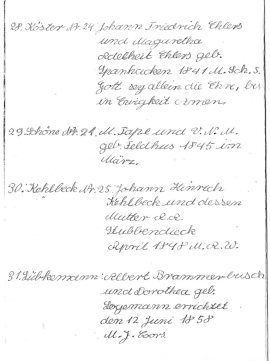 28. Köster Nr. 24 Johann Friedrich Ehlers
und Magaretha
Adelheit Ehlers geb.
Spanhacken 1841 M. Sch. S.
Gott sey allein die Ehre, bis
in Ewigkeit Amen.
29. Schöne Nr. 21. M. Tapl und V. N. M.
geb. Feldhus 1845 im
März.
30. Kehlbeck Nr. 25 Johann Hinrich
Kehlbeck und dessen
Mutter A.A.
Stubbendieck
April 1848 M. R. W.
31. Lübkemann: Albert Brammerbusch
und Dorothea geb.
Segemann errichtet
den 12 Juni 1858
M. J. Coors